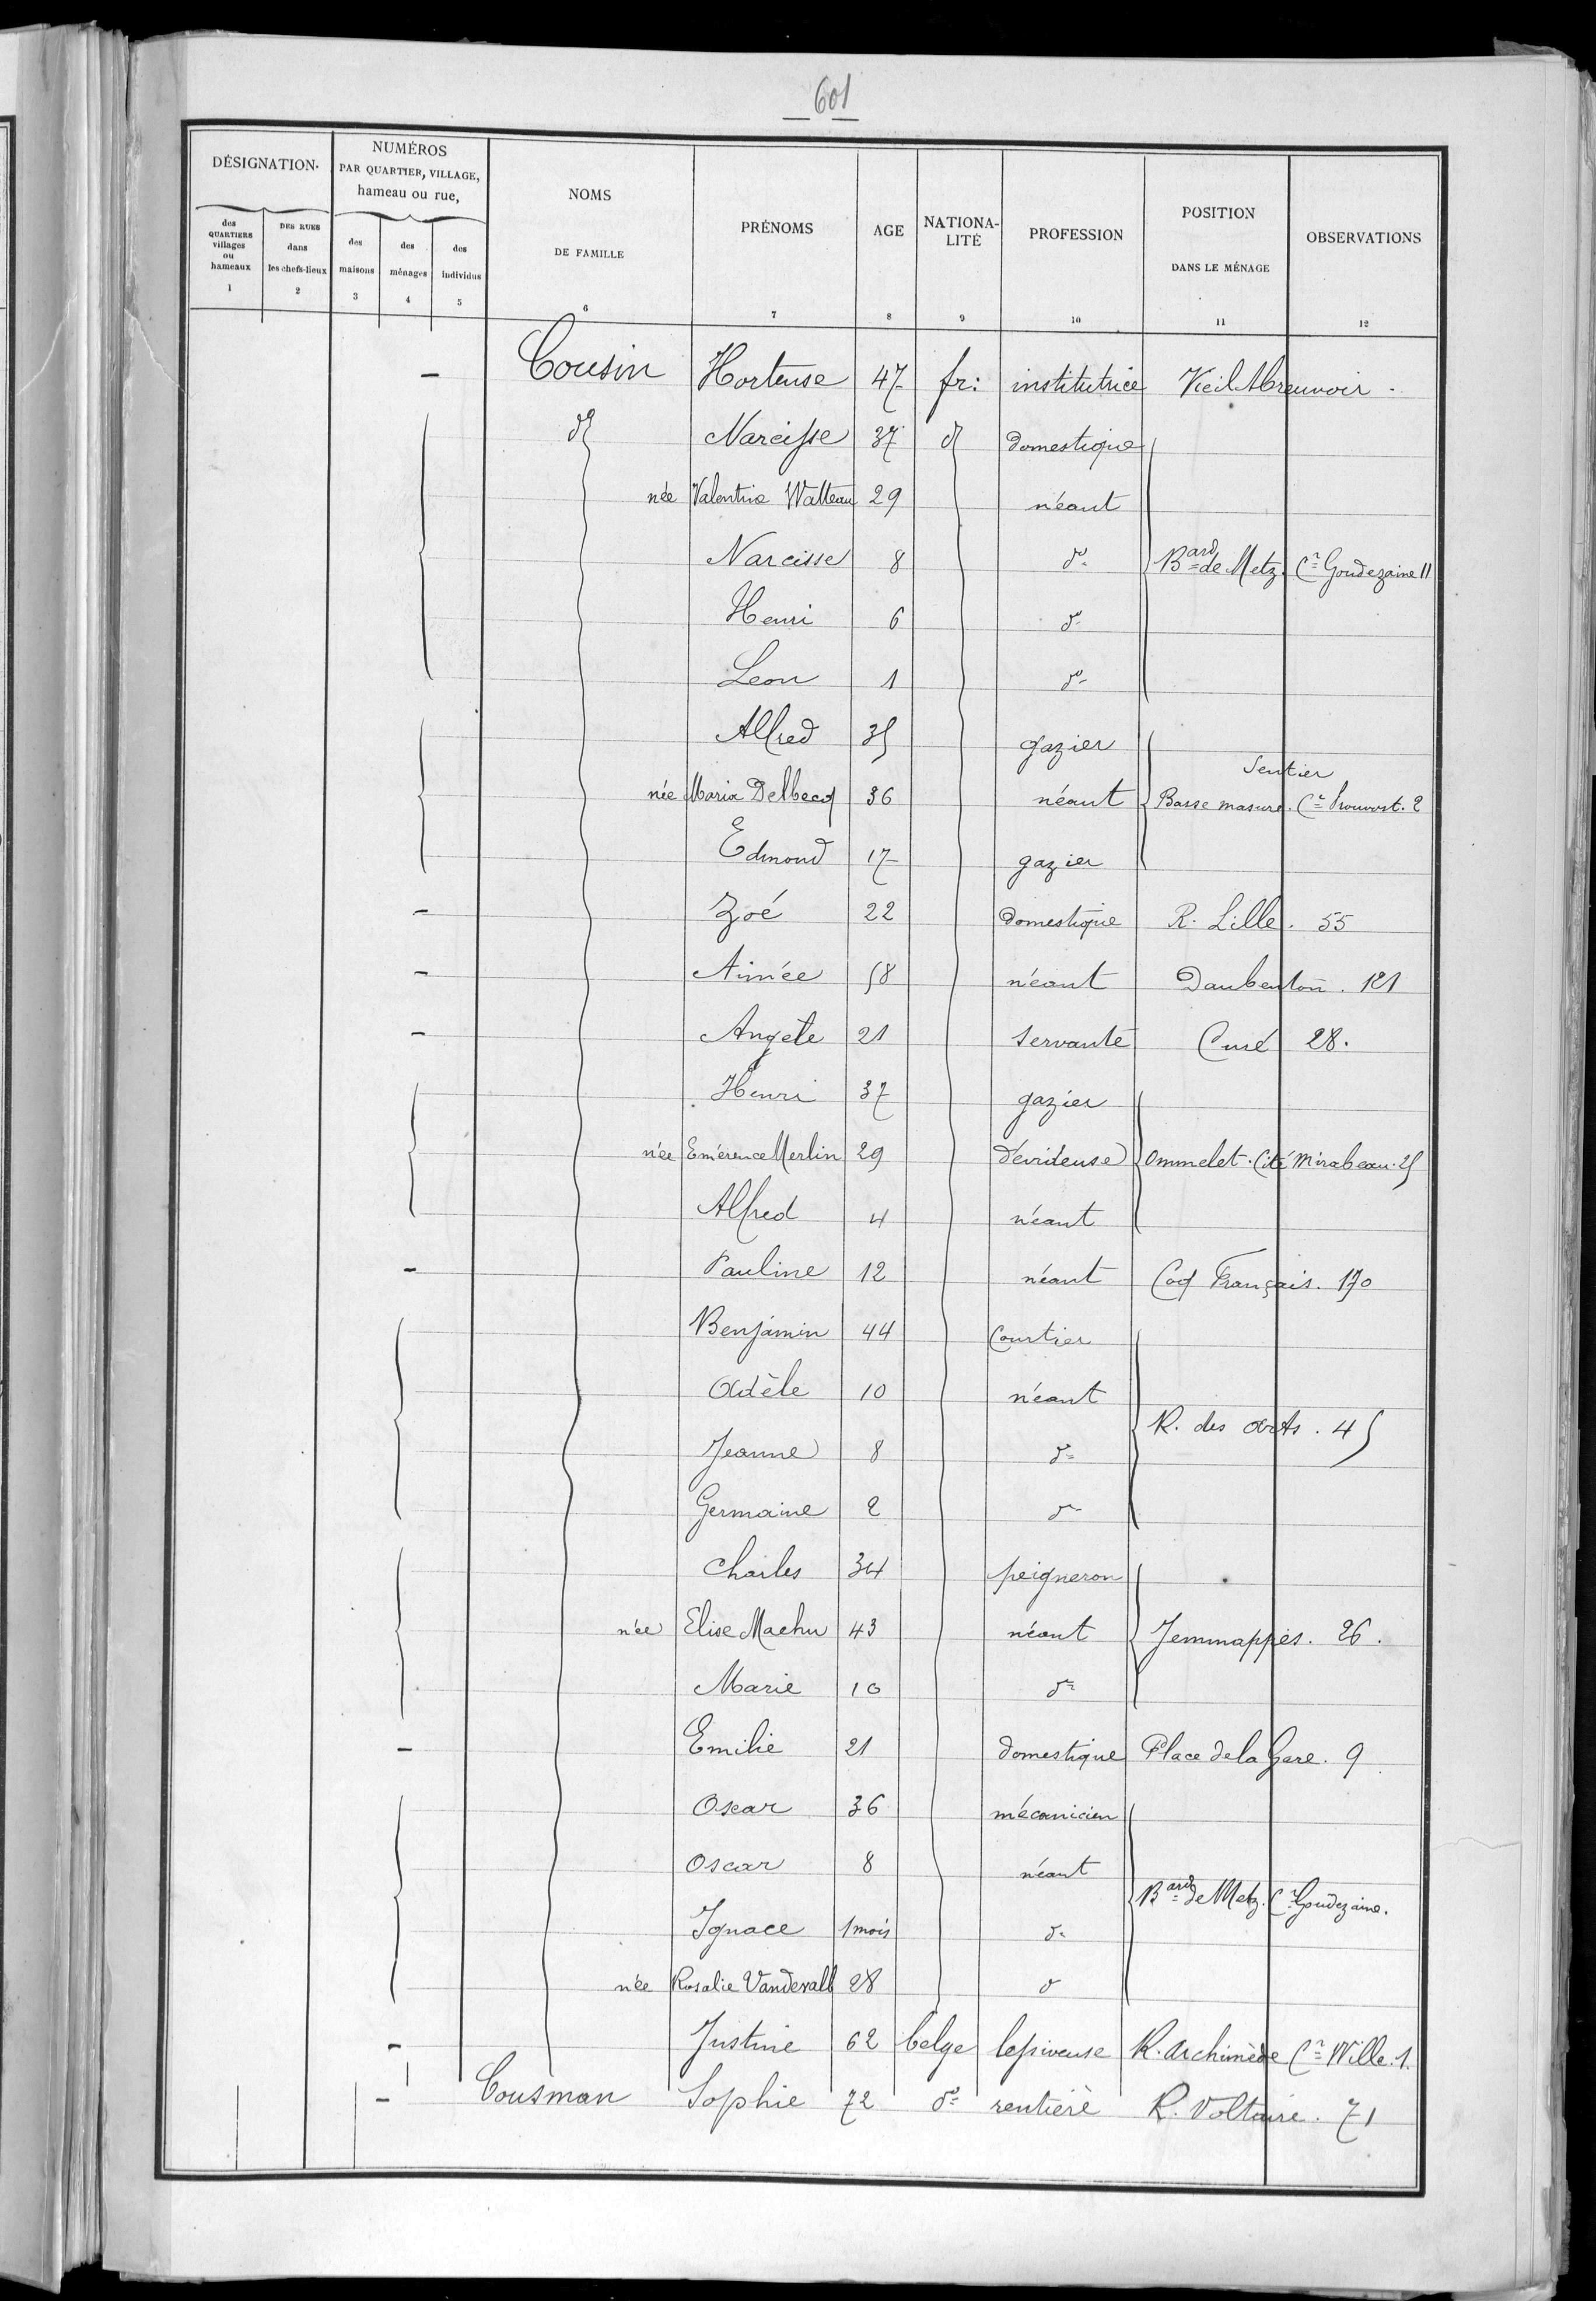 601
DÉSIGNATION. NUMÉROS PAR QUARTIER, VILLAGE, hameau ou rue, NOMS DE FAMILLE PRÉNOMS AGE NATIONA-LITÉ PROFESSION POSITION DANS LE MÉNAGE OBSERVATIONS
des QUARTIERS villages ou hameaux DES RUES dans les chefs-lieux des maisons des ménages des individus
1 2 3 4 5 6 7 8 9 10 11 12
- Cousin Hortense 47 fr: institutrice Vieil Abreuvoir.
d° Narcisse 37 d° domestique
née Valentine Watteau 29 néant
Narcisse 8 d° Bard de Metz. Cr Goudezaine 11
Henri 6 d°
Leon 1 d°
Alfred 35 gazier
Sentier
née Maria Delbecq 36 néant Basse masure. Cr Prouvost. 2
Edmond 17 gazier
- Zoé 22 domestique R. Lille. 55
- Aimée 58 néant Daubenton. 121
- Angèle 21 servante Curé 28.
Henri 37 gazier
née Emérence Merlin 29 dévideuse Ommelet. Cité Mirabeau. 25
Alfred 4 néant
- Pauline 12 néant Coq Français. 170
Benjamin 44 Courtier
Adèle 10 néant
R. des Arts. 45
Jeanne 8 d°
Germaine 2 d°
Charles 34 peigneron
née Elise Machu 43 néant Jemmappes. 26.
Marie 10 d°
- Emilie 21 domestique Place de la Gare. 9
Oscar 36 mécanicien
Oscar 8 néant
Bard de Metz. Cr Goudezaine.
Ignace 1 mois d°
née Rosalie Vandevall 28 d
- Justine 62 belge lessiveuse R. Archimède Cr Wille. 1.
- Cousman Sophie 72 d° rentière R. Voltaire. 71